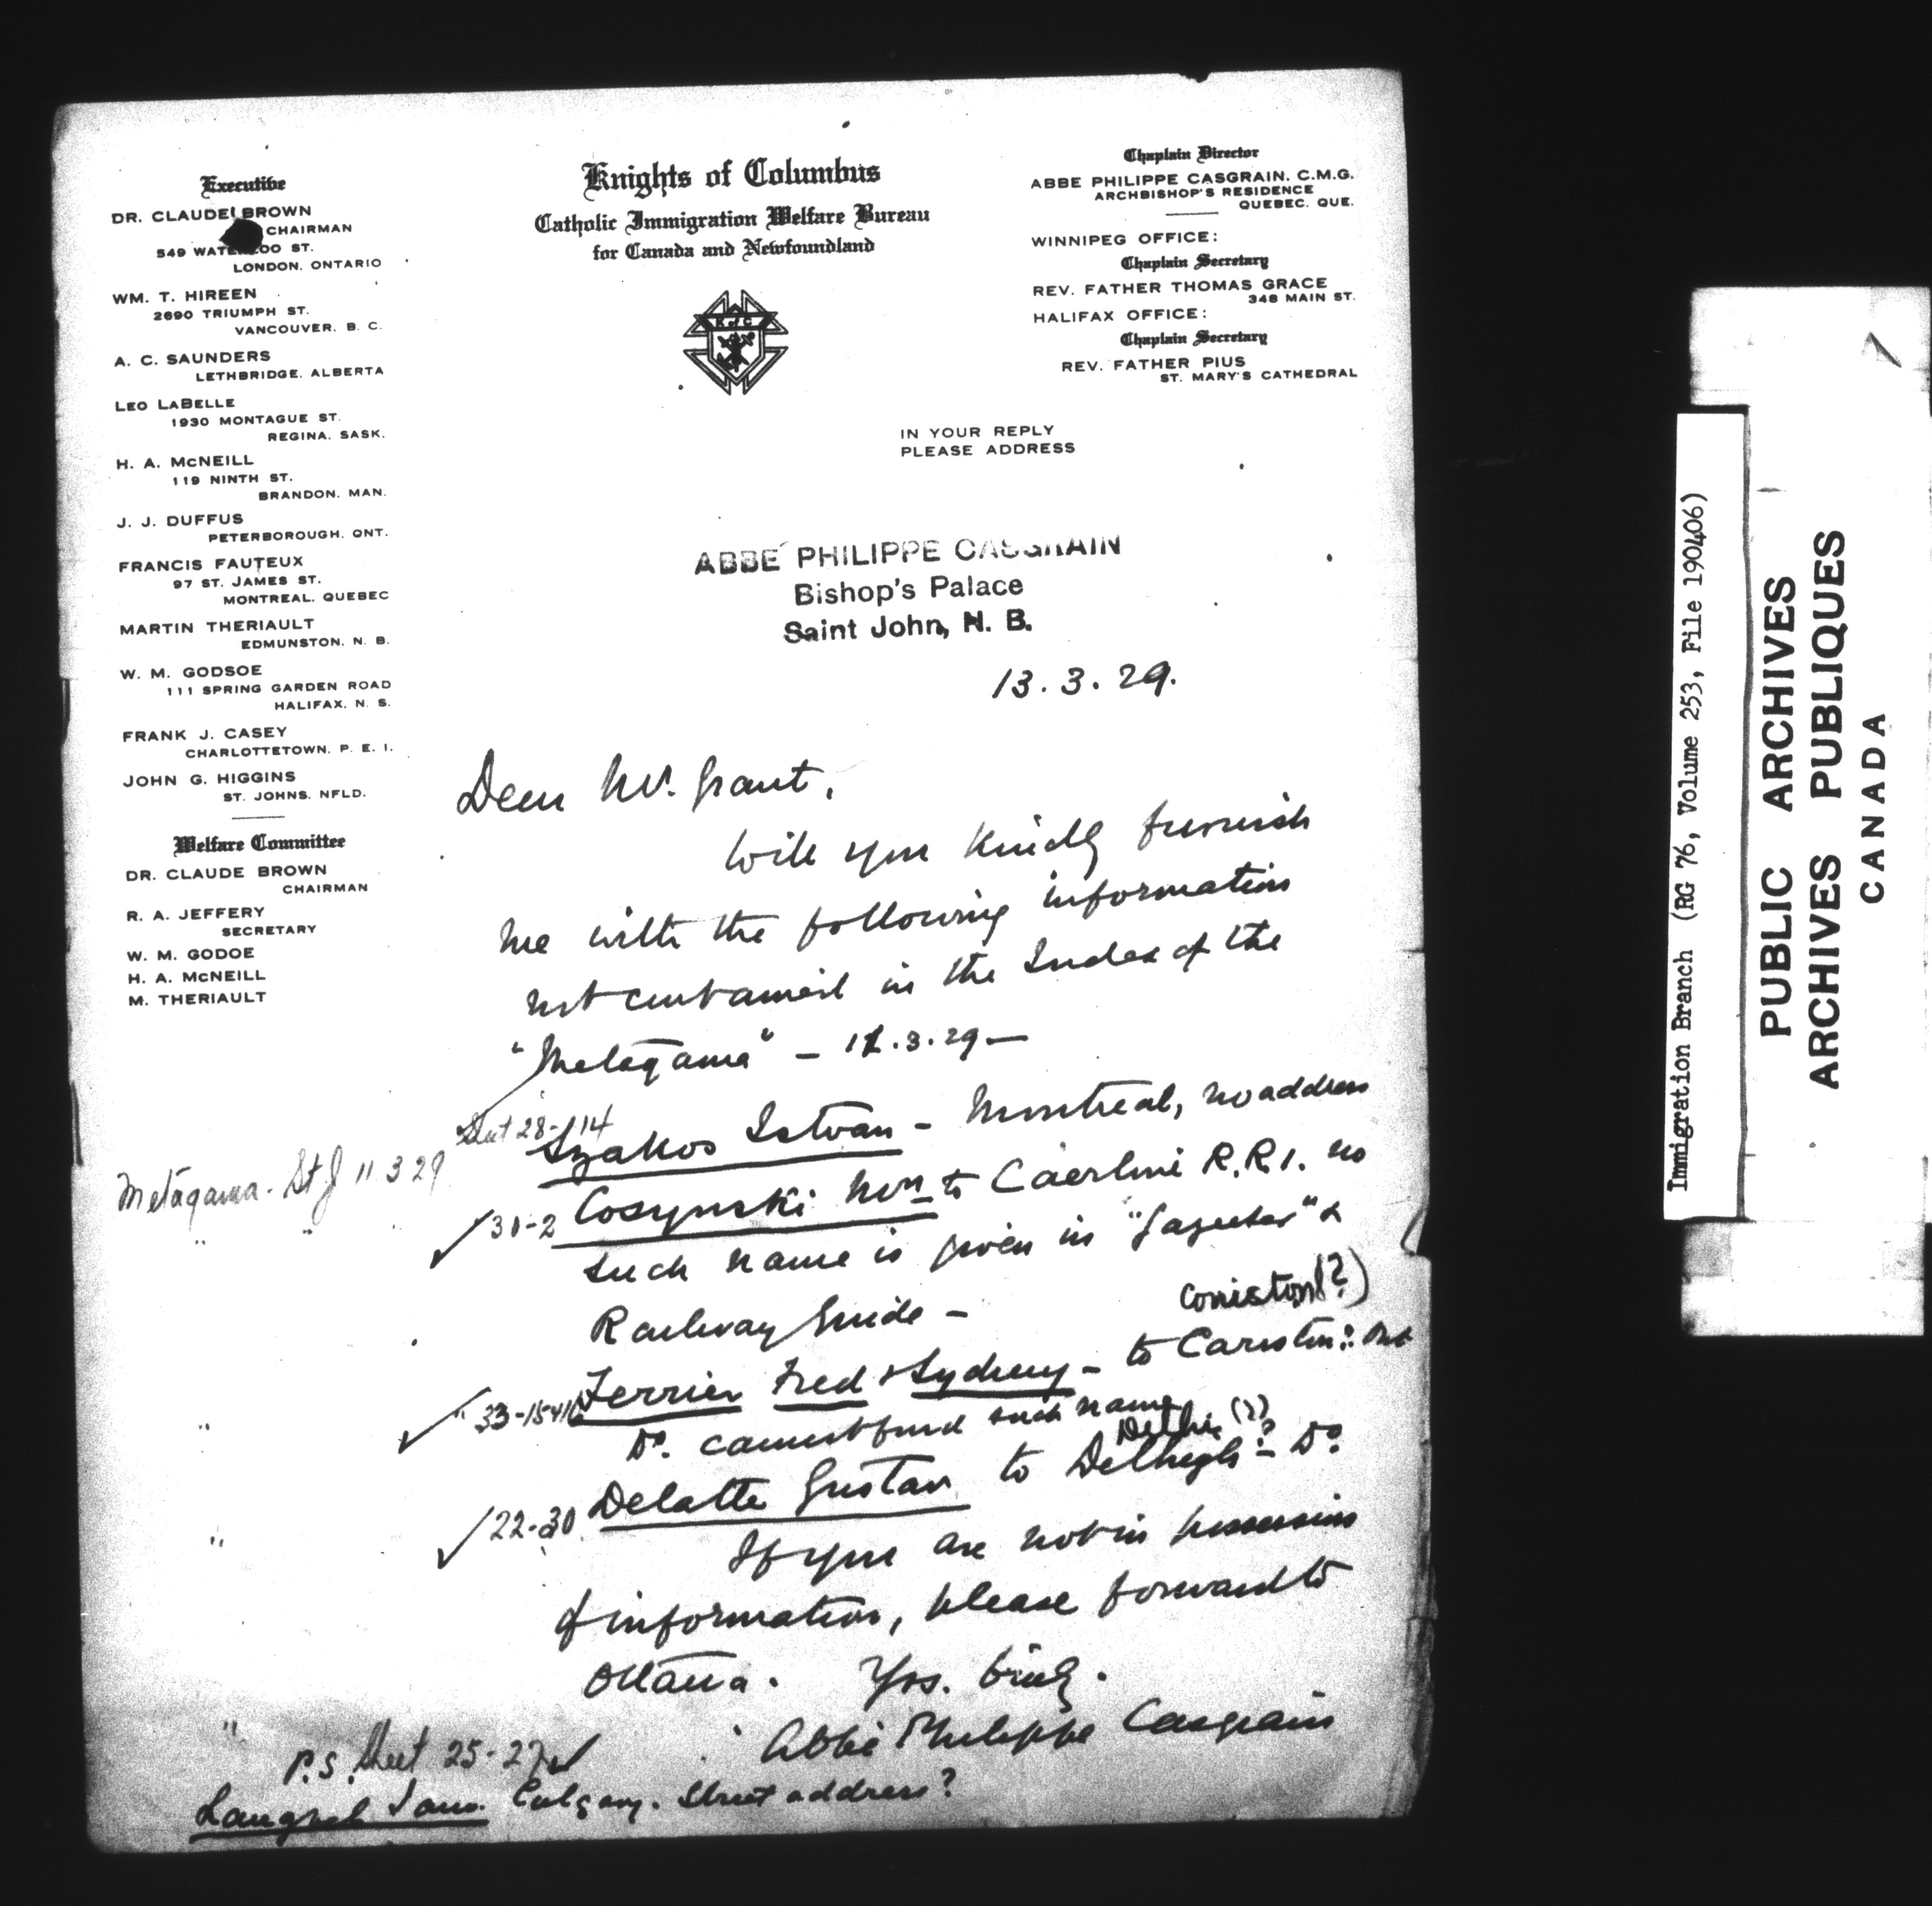 Executive
DR. CLAUDE BROWN
CHAIRMAN
549 WATERLOO ST.
LONDON, ONTARIO
WM. T. HIREEN
2690 TRIUMPH ST.
VANCOUVER, B. C.
A. C. SAUNDERS
LETHBRIDGE, ALBERTA
LEO LABELLE
1930 MONTAGUE ST.
REGINA, SASK.
H. A. MCNEILL
119 NINTH ST.
BRANDON, MAN.
J. J. DUFFUS
PETERBOROUGH, ONT.
FRANCIS FAUTEUX
97 ST. JAMES ST.
MONTREAL, QUEBEC
MARTIN THERIAULT
EDMUNSTON, N. B.
W. M. GODSOE
111 SPRING GARDEN ROAD
HALIFAX, N. S.
FRANK J. CASEY
CHARLOTTETOWN, P. E. I.
JOHN G. HIGGINS
ST. JOHNS, NFLD.
Welfare Committee
DR. CLAUDE BROWN
CHAIRMAN
R. A. JEFFERY
SECRETARY
W. M. GODOE
H. A. MCNEILL
M. THERIAULT
Knights of Columbus
Catholic Immigration Welfare Bureau
for Canada and Newfoundland
K of C
Chaplain Director
ABBE PHILIPPE CASGRAIN, C.M.G.
ARCHBISHOP'S RESIDENCE
QUEBEC, QUE.
WINNIPEG OFFICE:
Chaplain Secretary
REV. FATHER THOMAS GRACE
348 MAIN ST.
HALIFAX OFFICE:
Chaplain Secretary
REV. FATHER PIUS
ST. MARY'S CATHEDRAL
IN YOUR REPLY
PLEASE ADDRESS
ABBE PHILIPPE CASGRAIN
Bishop's Palace
Saint John, N. B.
13.3.29.
Dear Mr. Grant,
Will you kindly furnish
me with the following information
not contained in the Index of the
"Metagama" – 11.3.29 –
Sheet 28-14
Szakos Istvan – Montreal, no address
Metagama. St J 11 3 29
✓ 30-2 Cosynski to Caerline R.R.1. no
such name is given in "Gazeteer" &
Railway Guide –
Coniston (?)
✓ " 33-15+16 Ferrier Fred & Sydney – to Ont
Do. cannot find such name
Delhi (?)
✓ 22-30 Delatte Gustav to – Do
If you are not in possession
of information, please forward to
Ottawa. Yrs. truly.
Abbé Philippe Casgrain
" P.S. Sheet 25-27 ✓
Calgary. Street address?
Immigration Branch (RG 76, Volume 253, File 190406)
PUBLIC ARCHIVES
ARCHIVES PUBLIQUES
CANADA